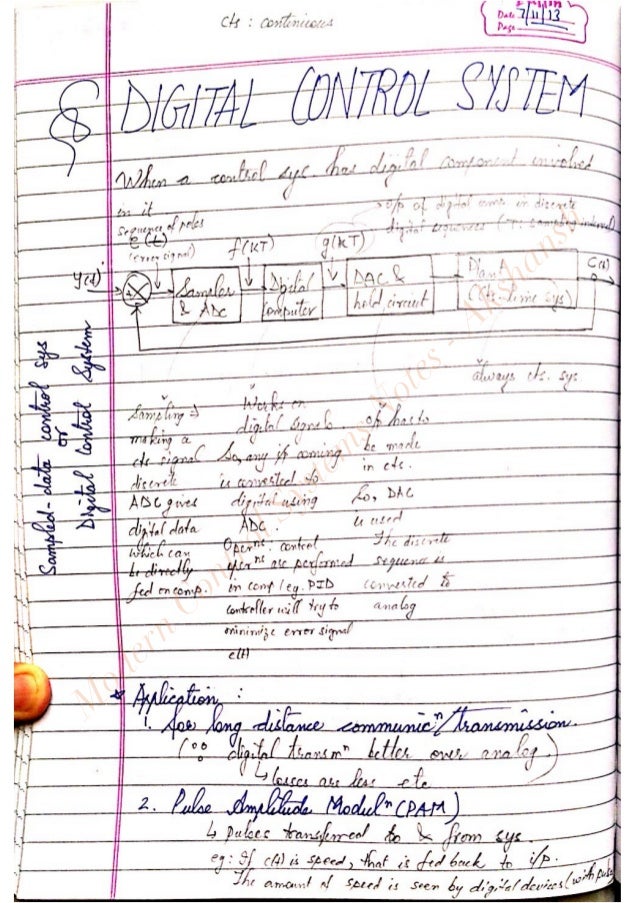 cts : continuous
Date 7/11/13
Page
§ DIGITAL CONTROL SYSTEM
When a control sys. has digital component involved
in it.
o/p of digital comp. in discrete
digital sequences (T: sampling interval)
sequence of poles
e(t)
(error signal)
f(KT)
g(KT)
y(t)
Sampler
& ADC
Digital
Computer
DAC &
hold circuit
Plant
(Cts-time sys)
C(t)
Sampled-data control sys
or
Digital Control System
always cts. sys
Sampling ⇒
making a
cts signal
discrete
ADC gives
digital data
which can
be directly
fed on comp.
Works on
digital signals.
So, any i/p coming
is converted to
digital using
ADC.
Opernⁿˢ: control
operⁿˢ are performed
in comp/eg. PID
controller will try to
minimize error signal
e(t)
o/p has to
be made
in cts.
So, DAC
is used
The discrete
sequence is
converted to
analog
* Application :
1. For long distance communicⁿ/transmission.
(∵ digital transmⁿ better over analog)
↳ losses are less etc
2. Pulse Amplitude Modulⁿ (PAM)
↳ pulses transferred to & from sys.
eg: If c(t) is speed, that is fed back to i/p.
The amount of speed is seen by digital devices (with pulse
Modern Control Systems Notes - Akshansh